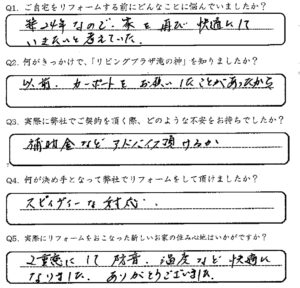 Q1. ご自宅をリフォームする前にどんなことに悩んでいましたか?
築24年なので、家を再び快適にして
いきたいと考えていた。
Q2. 何がきっかけで、「リビングプラザ滝の神」を知りましたか?
以前、カーポートをお願いしたことがあったから
Q3. 実際に弊社でご契約を頂く際、どのような不安をお持ちでしたか?
補助金などアドバイス頂けるか
Q4. 何が決め手となって弊社でリフォームをして頂けましたか?
スピィディーな対応。
Q5. 実際にリフォームをおこなった新しいお家の住み心地はいかがですか?
2重窓にして防音、温度など快適に
なりました。ありがとうございました。